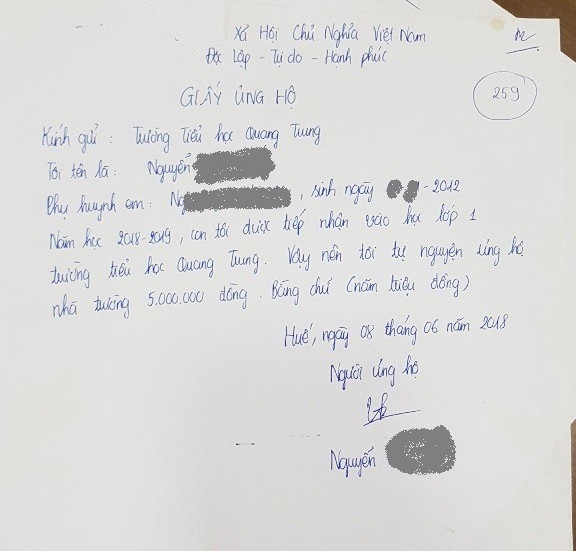 Xã Hội Chủ Nghĩa Việt Nam
Độc Lập - Tự do - Hạnh phúc
GIẤY ỦNG HỘ
259
Kính gửi : Trường Tiểu học Quang Trung
Tôi tên là : Nguyễn
Phụ huynh em : Ng , sinh ngày -2012
Năm học 2018-2019 , con tôi được tiếp nhận vào học lớp 1
trường tiểu học Quang Trung . Vậy nên tôi tự nguyện ủng hộ
nhà trường 5.000.000 đồng . Bằng chữ (năm triệu đồng)
Huế, ngày 08 tháng 06 năm 2018
Người ủng hộ
Nguyễn